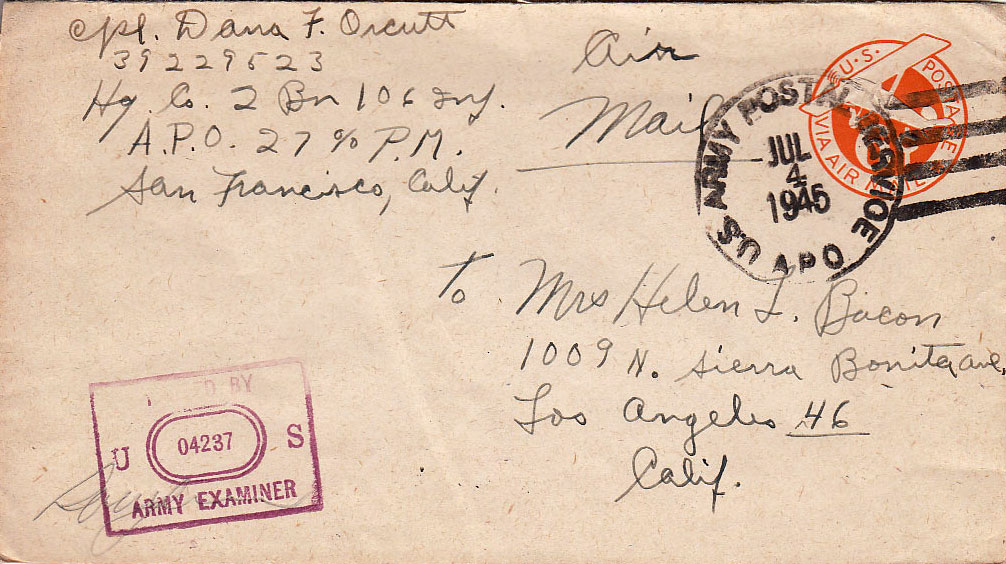 Cpl. Dana F. Orcutt
39229523
Hq. Co. 2 Bn 106 Inf.
A.P.O. 27 c/o P.M.
San Francisco, Calif.
Air
Mail
U.S. ARMY POSTAL SERVICE
JUL
4
1945
A.P.O
U.S. POSTAGE
VIA AIR MAIL
To Mrs Helen L. Bacon
1009 N. Sierra Bonita ave.
Los Angeles 46
Calif.
D BY
U 04237 S
ARMY EXAMINER